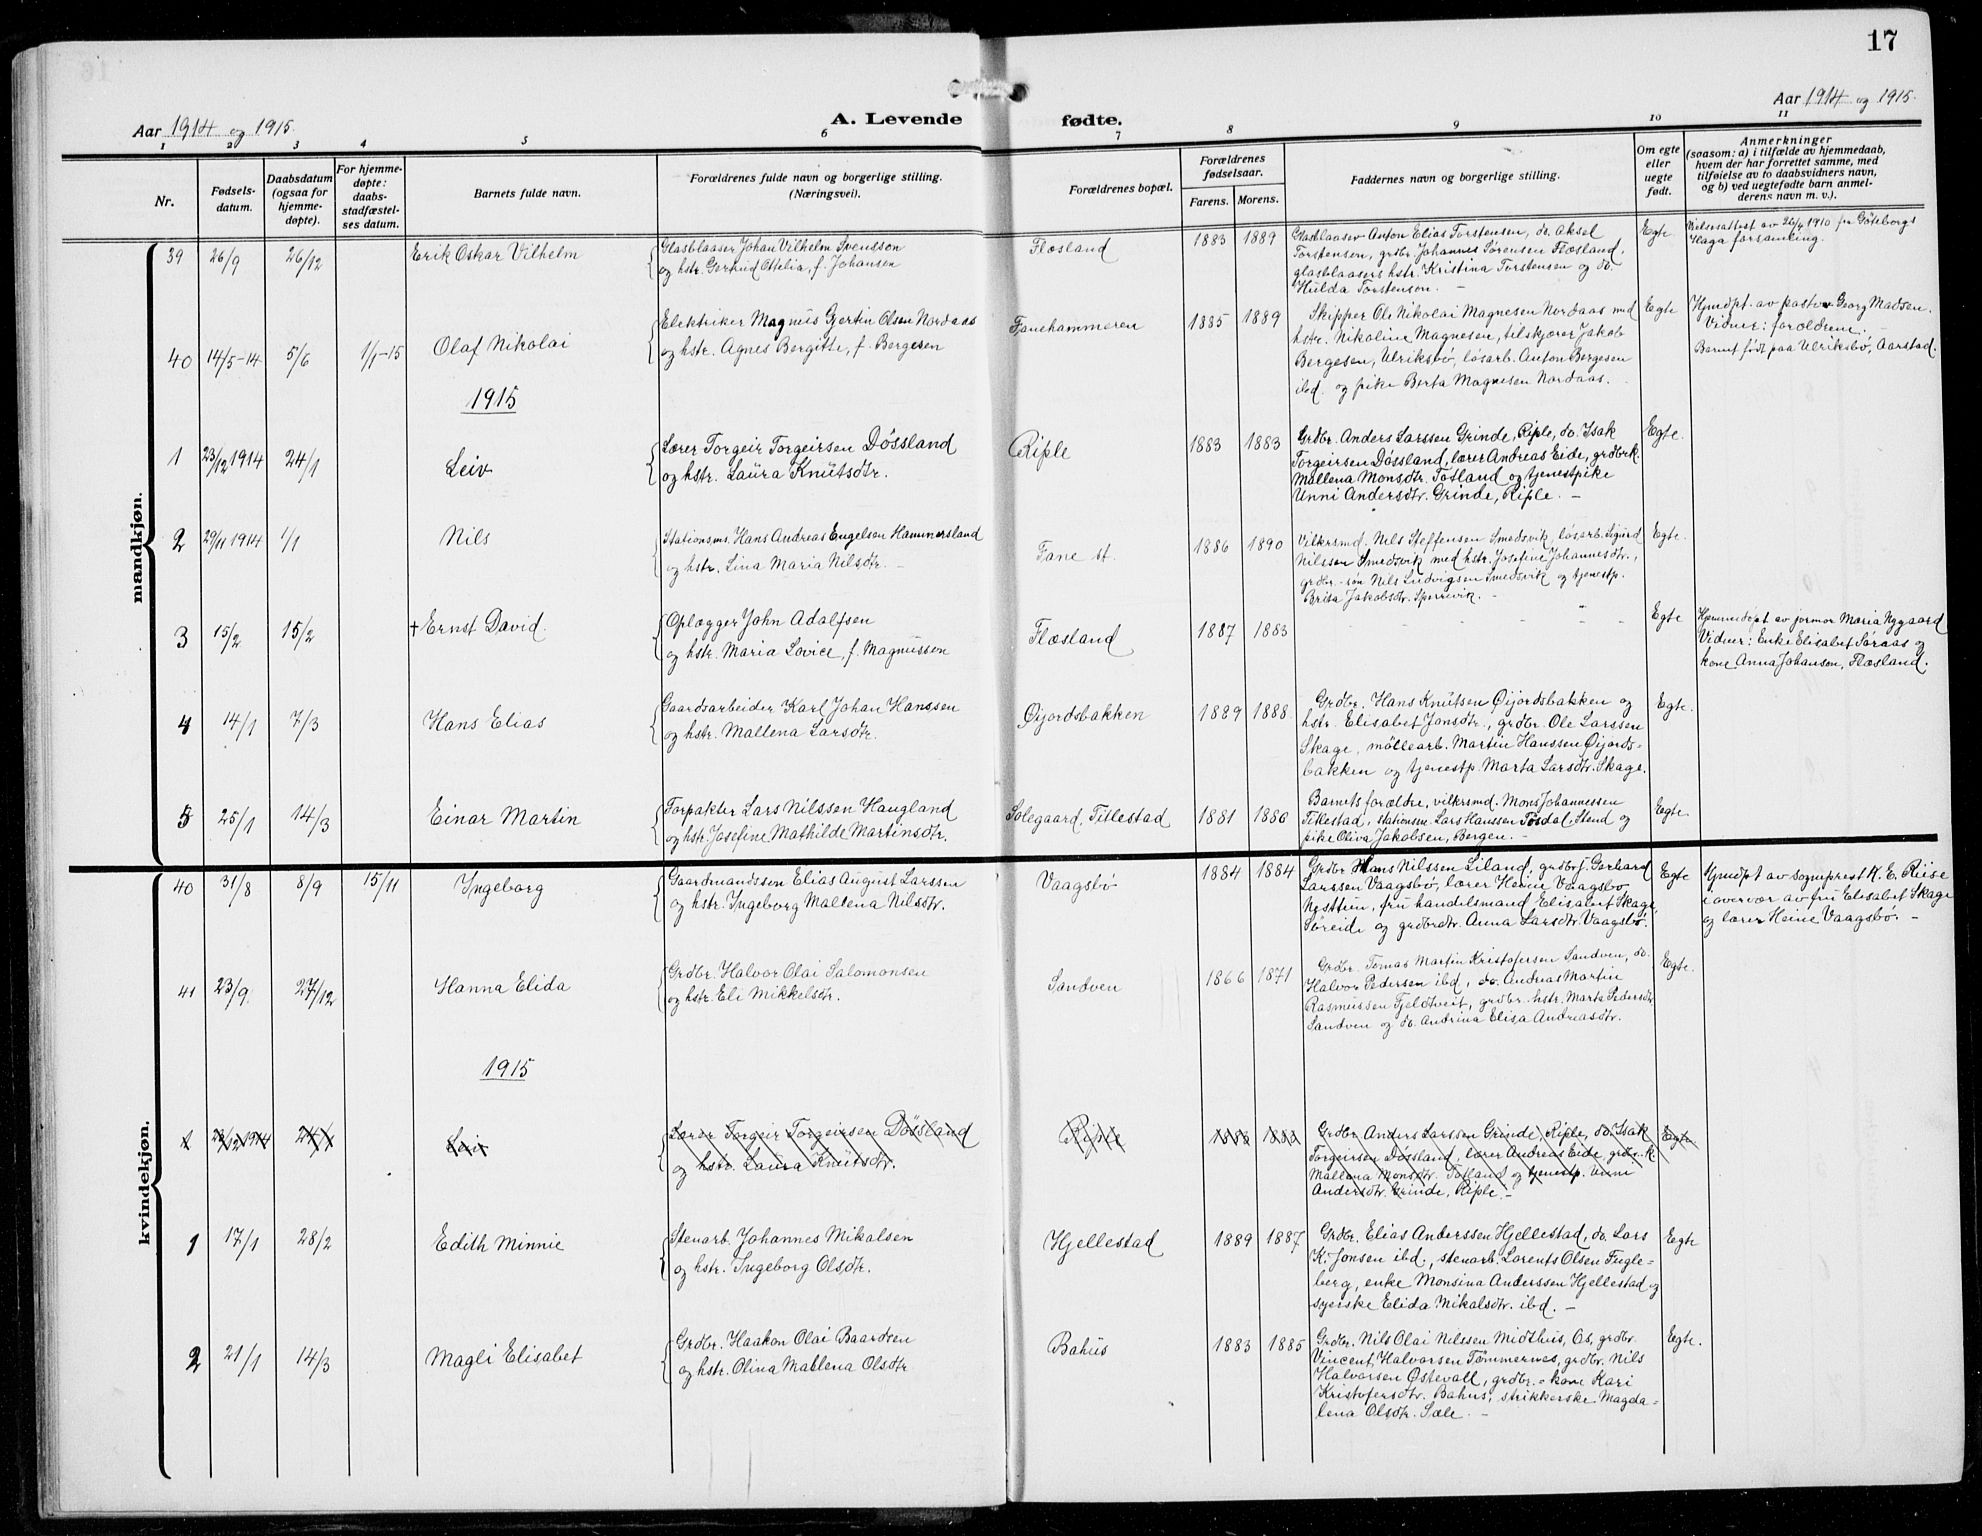 17
Aar 1914 og 1915.
A. Levende fødte.
Aar 1914 og 1915.
1 2 3 4 5 6 7 8 9 10 11
Nr.
Fødsels-
datum.
Daabsdatum
(ogsaa for
hjemme-
døpte).
For hjemme-
døpte:
daabs-
stadfæstel-
ses datum.
Barnets fulde navn.
Forældrenes fulde navn og borgerlige stilling.
(Næringsvei).
Forældrenes bopæl.
Forældrenes
fødselsaar.
Farens. Morens.
Faddernes navn og borgerlige stilling.
Om egte
eller
uegte
født.
Anmerkninger
(saasom: a) i tilfælde av hjemmedaab,
hvem der har forrettet samme, med
tilføielse av to daabsvidners navn,
og b) ved uegtefødte barn anmel-
derens navn m. v.).
mandkjøn.
39 26/9 26/12 Erik Oskar Vilhelm
Glasblaaser Johan Vilhelm Svensson
og hstr. Gertrud Ottelia, f. Johansen
Flæsland 1883 1889
Glasblaaser Anton Elias Torstensen, do. Aksel
Torstensen, grdbr. Johannes Sørensen Flæsland,
glasblaasers hstr. Kristina Torstensen og do.
Hulda Torstenson. –
Egte
Vielsesattest av 26/4 1910 fra Göteborgs
Haga forsamling.
40 14/5-14 5/6 1/1-15 Olaf Nikolai
Elektriker Magnus Gjertin Olsen Nordaas
og hstr. Agnes Bergitte, f. Bergesen
Fanehammeren 1885 1889
Skipper Ole Nikolai Magnesen Nordaas md
hstr. Nikoline Magnesen, tilskjærer Jakob
Bergesen, Ulriksbø, løsarb. Anton Bergesen
ibd. og pike Berta Magnesen Nordaas.
Egte
Hjmdpt. av pastor Georg Madsen.
Vidner: forældrene.
Barnet født paa Ulriksbø, Aarstad.
1915
1 23/12 1914 24/1 Leiv
Lærer Torgeir Torgeirsen Døssland
og hstr. Laura Knutsdtr.
Riple 1883 1883
Grdbr. Anders Larssen Grinde, Riple, do. Isak
Torgeirsen Døssland, lærer Andreas Eide, grdbrk.
Mallena Monsdtr. Totland og tjenestpike
Unni Andersdtr. Grinde, Riple. –
Egte.
2 29/11 1914 1/1 Nils
Stationsms. Hans Andreas Engelsen Hammersland
og hstr. Lina Maria Nilsdtr. –
Fane st. 1886 1890
Vilkrsmd. Nils Steffensen Smedsvik, løsarb. Sigurd
Nilssen Smedsvik med hstr. Josefine Johannesdtr.,
grdbr.-søn Nils Ludvigsen Smedsvik og tjenestp.
Brita Jakobsdtr. Sperrevik. –
Egte.
3 15/2 15/2 † Ernst David.
Oplægger John Adolfsen
og hstr. Maria Lovice, f. Magnussen
Flæsland 1887 1883
Egte
Hjemmedøpt av jormor Maria Nygaard
Vidner: Enke Elisabet Søraas og
kone Anna Johansen, Flæsland.
4 14/1 7/3 Hans Elias
Gaardsarbeider Karl Johan Hanssen
og hstr. Mallena Larsdtr.
Øijordsbakken 1889 1888
Grdbr. Hans Knutsen Øijordsbakken og
hstr. Elisabet Jonsdtr., grdbr. Ole Larssen
Skage, møllearb. Martin Hanssen Øijords=
bakken og tjenestp. Marta Larsdtr. Skage.
Egte.
5 25/1 14/3 Einar Martin
Forpakter Lars Nilssen Haugland
og hstr. Josefine Mathilde Martinsdtr.
Solegaard, Titlestad 1881 1886
Barnets forældre, vilkrsmd. Mons Johannessen
Titlestad, stationsm. Lars Hanssen Tosdal, Stend og
pike Oliva Jakobsen, Bergen. –
Egte.
kvindekjøn.
40 31/8 8/9 15/11 Ingeborg
Gaardmandssøn Elias August Larssen
og hstr. Ingeborg Mallena Nilsdtr.
Vaagsbø 1884 1884
Grdbr. Hans Nilssen Liland, grdbrf. Gerhard
Larssen Vaagsbø, lærer Heine Vaagsbø
Nesttun, fru handelsmand Elisabet Skage,
Søreide og grdbrdtr. Anna Larsdtr. Vaagsbø.
Egte
Hjmdpt av sogneprest K. E. Riise
i overvær av fru Elisabet Skage
og lærer Heine Vaagsbø. –
41 23/9. 27/12 Hanna Elida
Grdbr. Halvor Olai Salomonsen
og hstr. Eli Mikkelsdtr.
Sandven 1866 1871
Grdbr. Tomas Martin Kristofersen Sandven, do.
Halvor Pedersen ibd, do. Andreas Martin
Rasmussen Fjeldtveit, grdbr. hstr. Marta Pedersdtr
Sandven og do. Andrina Elisa Andreasdtr.
Egte.
1915
1 23/12 1914 24/1 Leiv
Lærer Torgeir Torgeirsen Døssland
og hstr. Laura Knutsdtr.
Riple 1883 1883
Grdbr. Anders Larssen Grinde, Riple, do. Isak
Torgeirsen Døssland, lærer Andreas Eide, grdbr.k.
Mallena Monsdtr. Totland og tjenestp. Unni
Andersdtr. Grinde, Riple. –
Egte.
1 17/1 28/2 Edith Minnie
Stenarb. Johannes Mikalsen
og hstr. Ingeborg Olsdtr.
Hjellestad 1889 1887
Grdbr. Elias Anderssen Hjellestad, do. Lars
K. Jonsen ibd., stenarb. Lorents Olsen Fugle=
berg, enke Monsina Anderssen Hjellestad og
syerske Elida Mikalsdtr. ibd. –
Egte
2 21/1 14/3 Magli Elisabet
Grdbr. Haakon Olai Baardsen
og hstr. Olina Mallena Olsdtr
Bahus 1883 1885
Grdbr. Nils Olai Nilssen Midthus, Os, grdbr.
Vincent Halvorsen Tømmernes, grdbr. Nils
Halvorsen Østevoll, grdbr.-kone Kari
Kristofersdtr. Bahus, strikkerske Magda=
lena Olsdtr. Sæle. –
Egte.